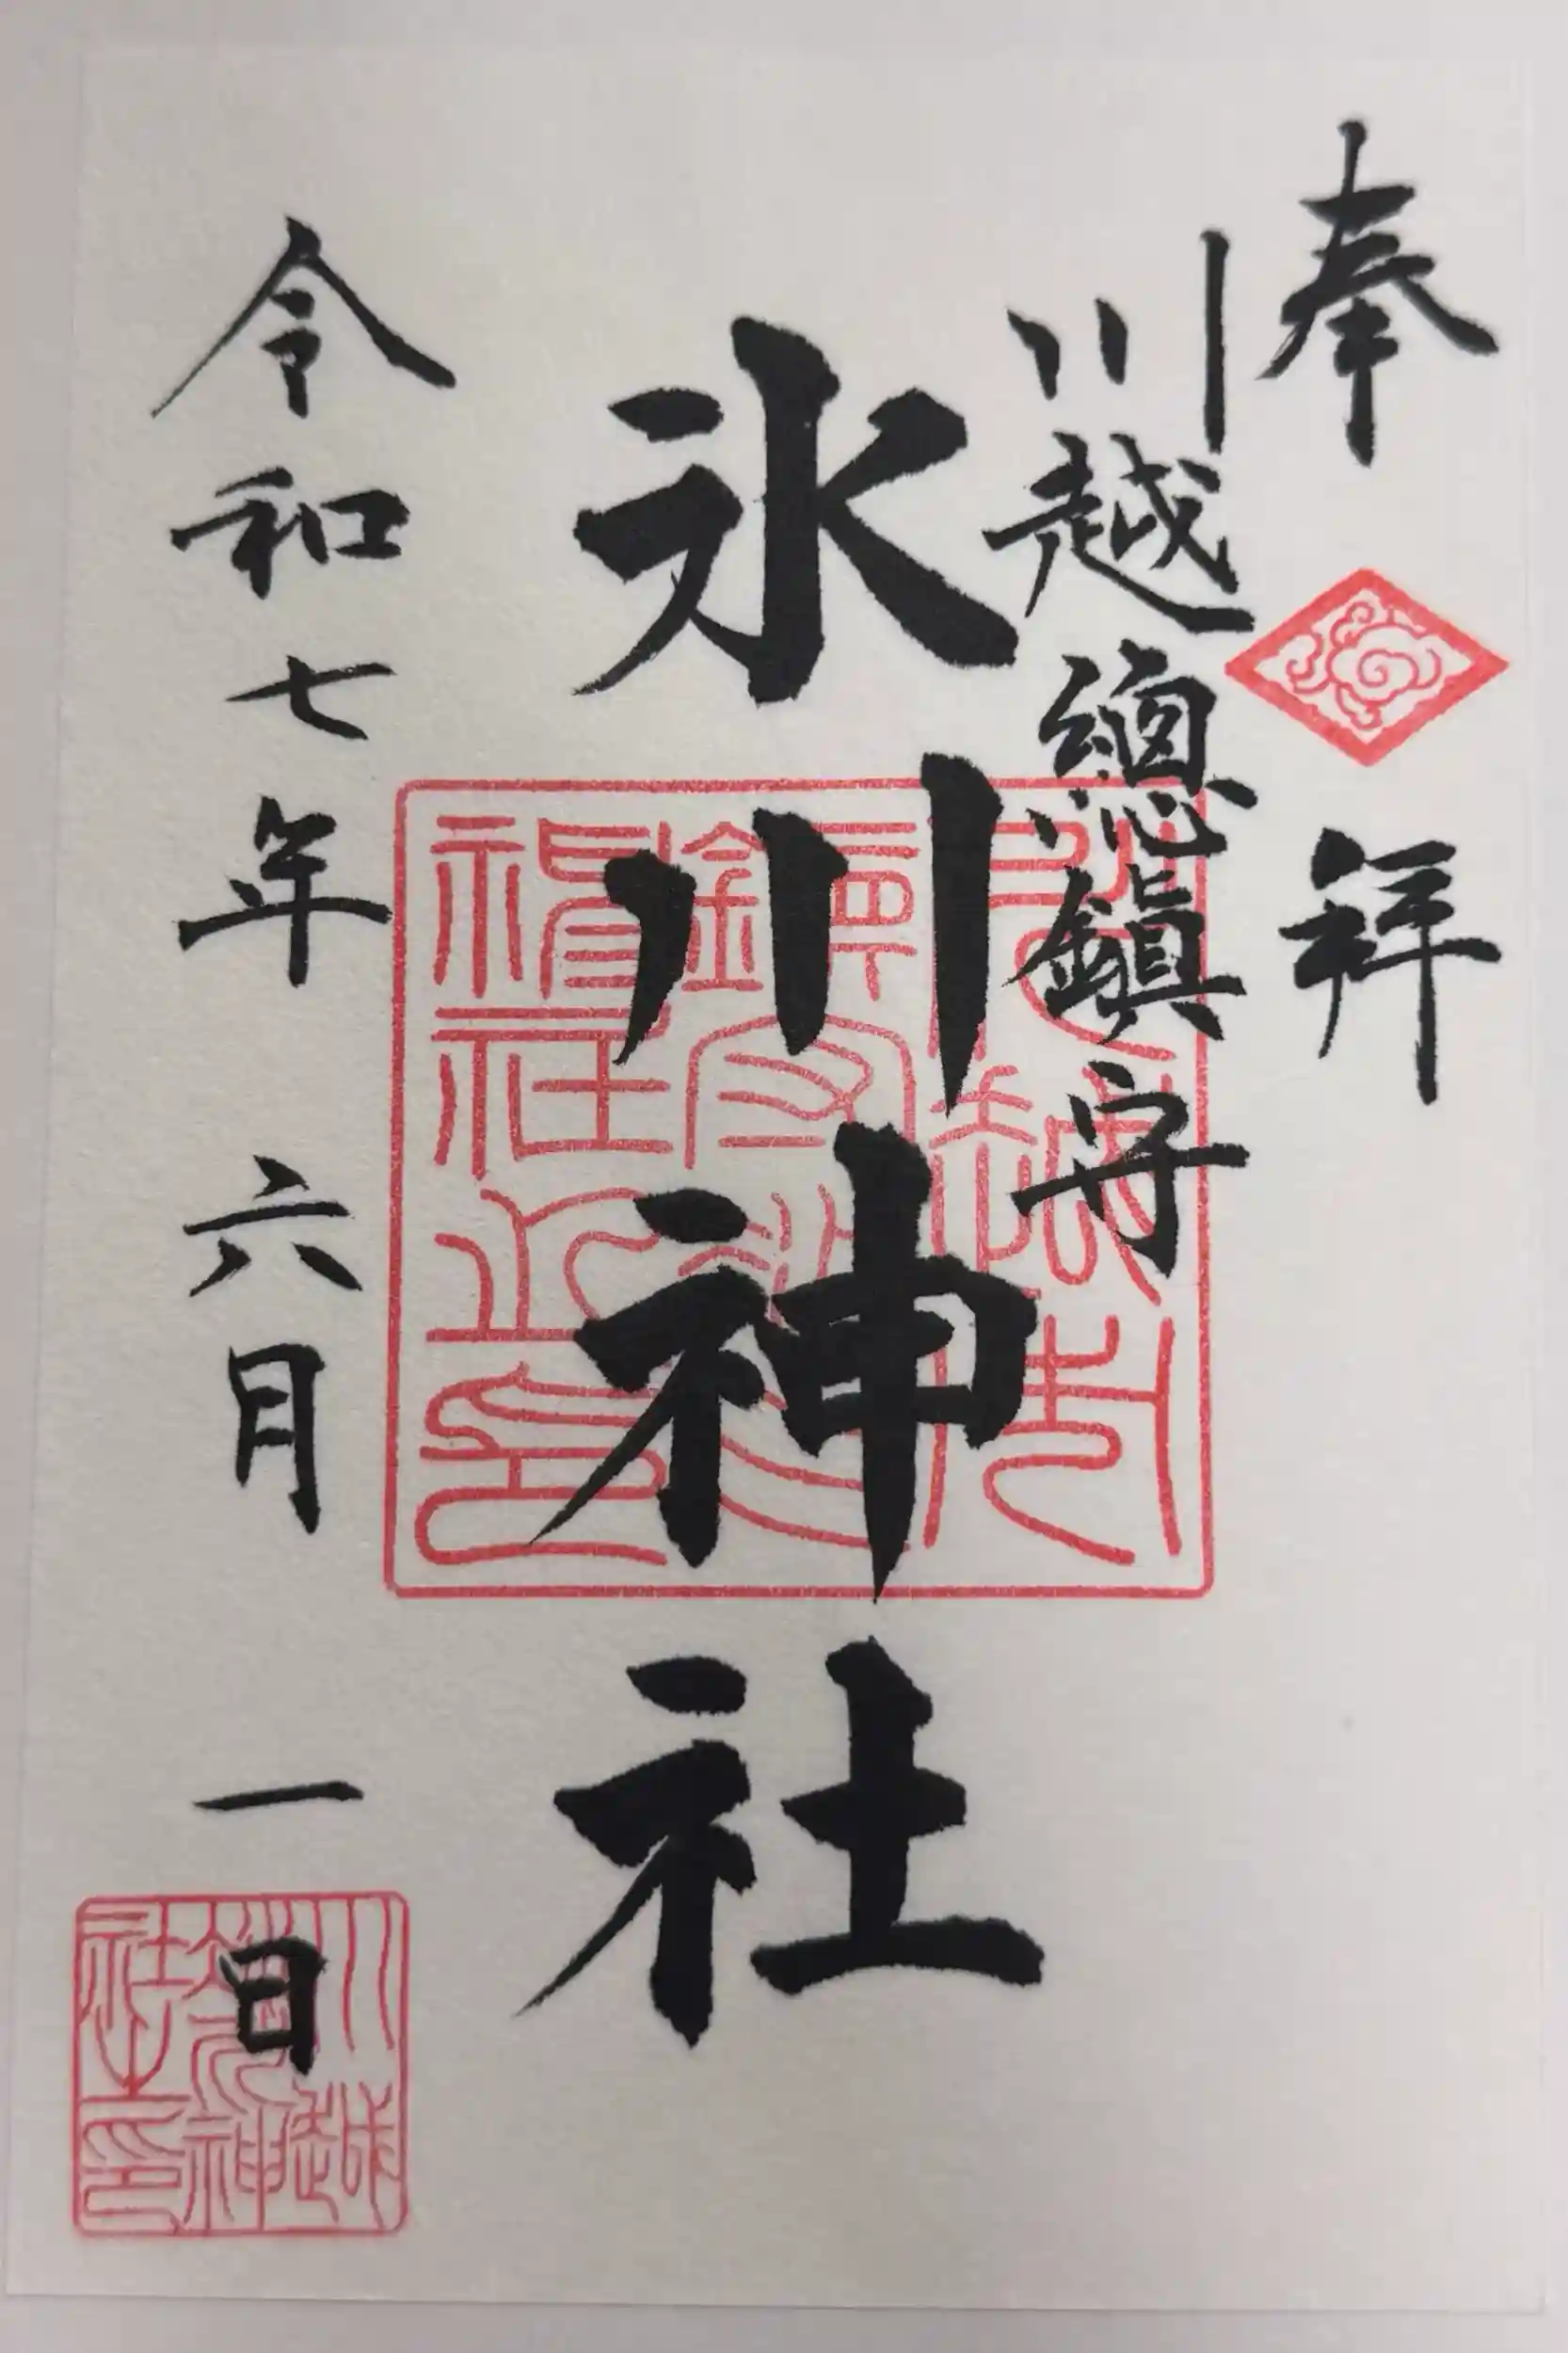 奉拝
川越總鎮守
氷川神社
令和七年六月一日